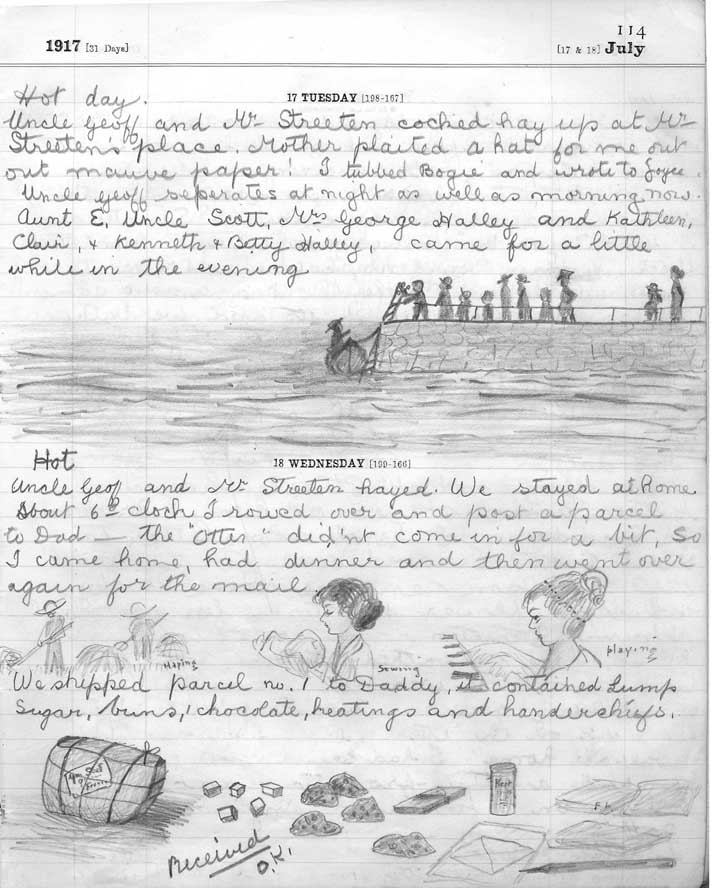 114
1917 [31 Days] [17 & 18] July
17 TUESDAY [198-167]
Hot day.
Uncle Geoff and Mr Streeten cocked hay up at Mr
Streeten's place. Mother plaited a hat for me out
out mauve paper! I tubbed Bogie and wrote to Joyce.
Uncle Geoff seperates at night as well as morning now.
Aunt E, Uncle Scott, Mrs George Halley and Kathleen,
Clair, & Kenneth & Betty Halley, came for a little
while in the evening
18 WEDNESDAY [199-166]
Hot
Uncle Geoff and Mr Streeten hayed. We stayed at Home
About 6 o clock I rowed over and post a parcel
to Dad — the "Otter" did'nt come in for a bit, so
I came home, had dinner and then went over
again for the mail.
Haying
Sewing
playing
We shipped parcel no. 1 to Daddy, it contained Lump
Sugar, buns, chocolate, heatings and handerchiefs.
France
Received
O.K!